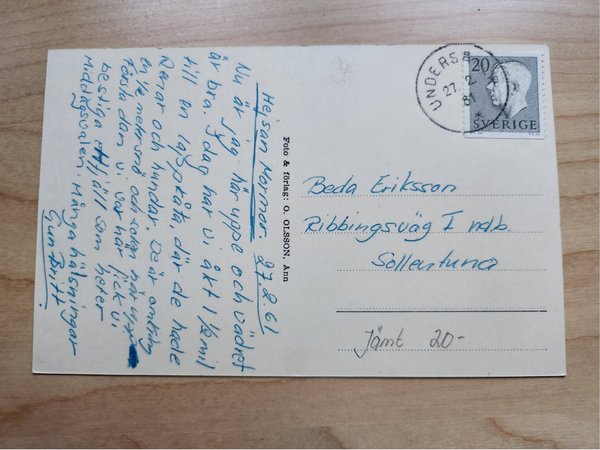 Hejsan Mormor. 27.2.61
Nu är jag här uppe och vädret
är bra. Idag har vi åkt 1 ½ mil
till en lappkåta, där de hade
Renar och hundar. Det är omkring
en te meter snö och solen här uppe
första dan vi var här fick vi
bestiga ett fjäll som heter
Middagsvalen. Många hälsningar
Gun Britt.
Foto & förlag: O. OLSSON, Ånn
UNDERSÅ
27.2
61
20
SVERIGE
Beda Eriksson
Ribbingsväg 1 ndb.
Sollentuna
Jämt 20-